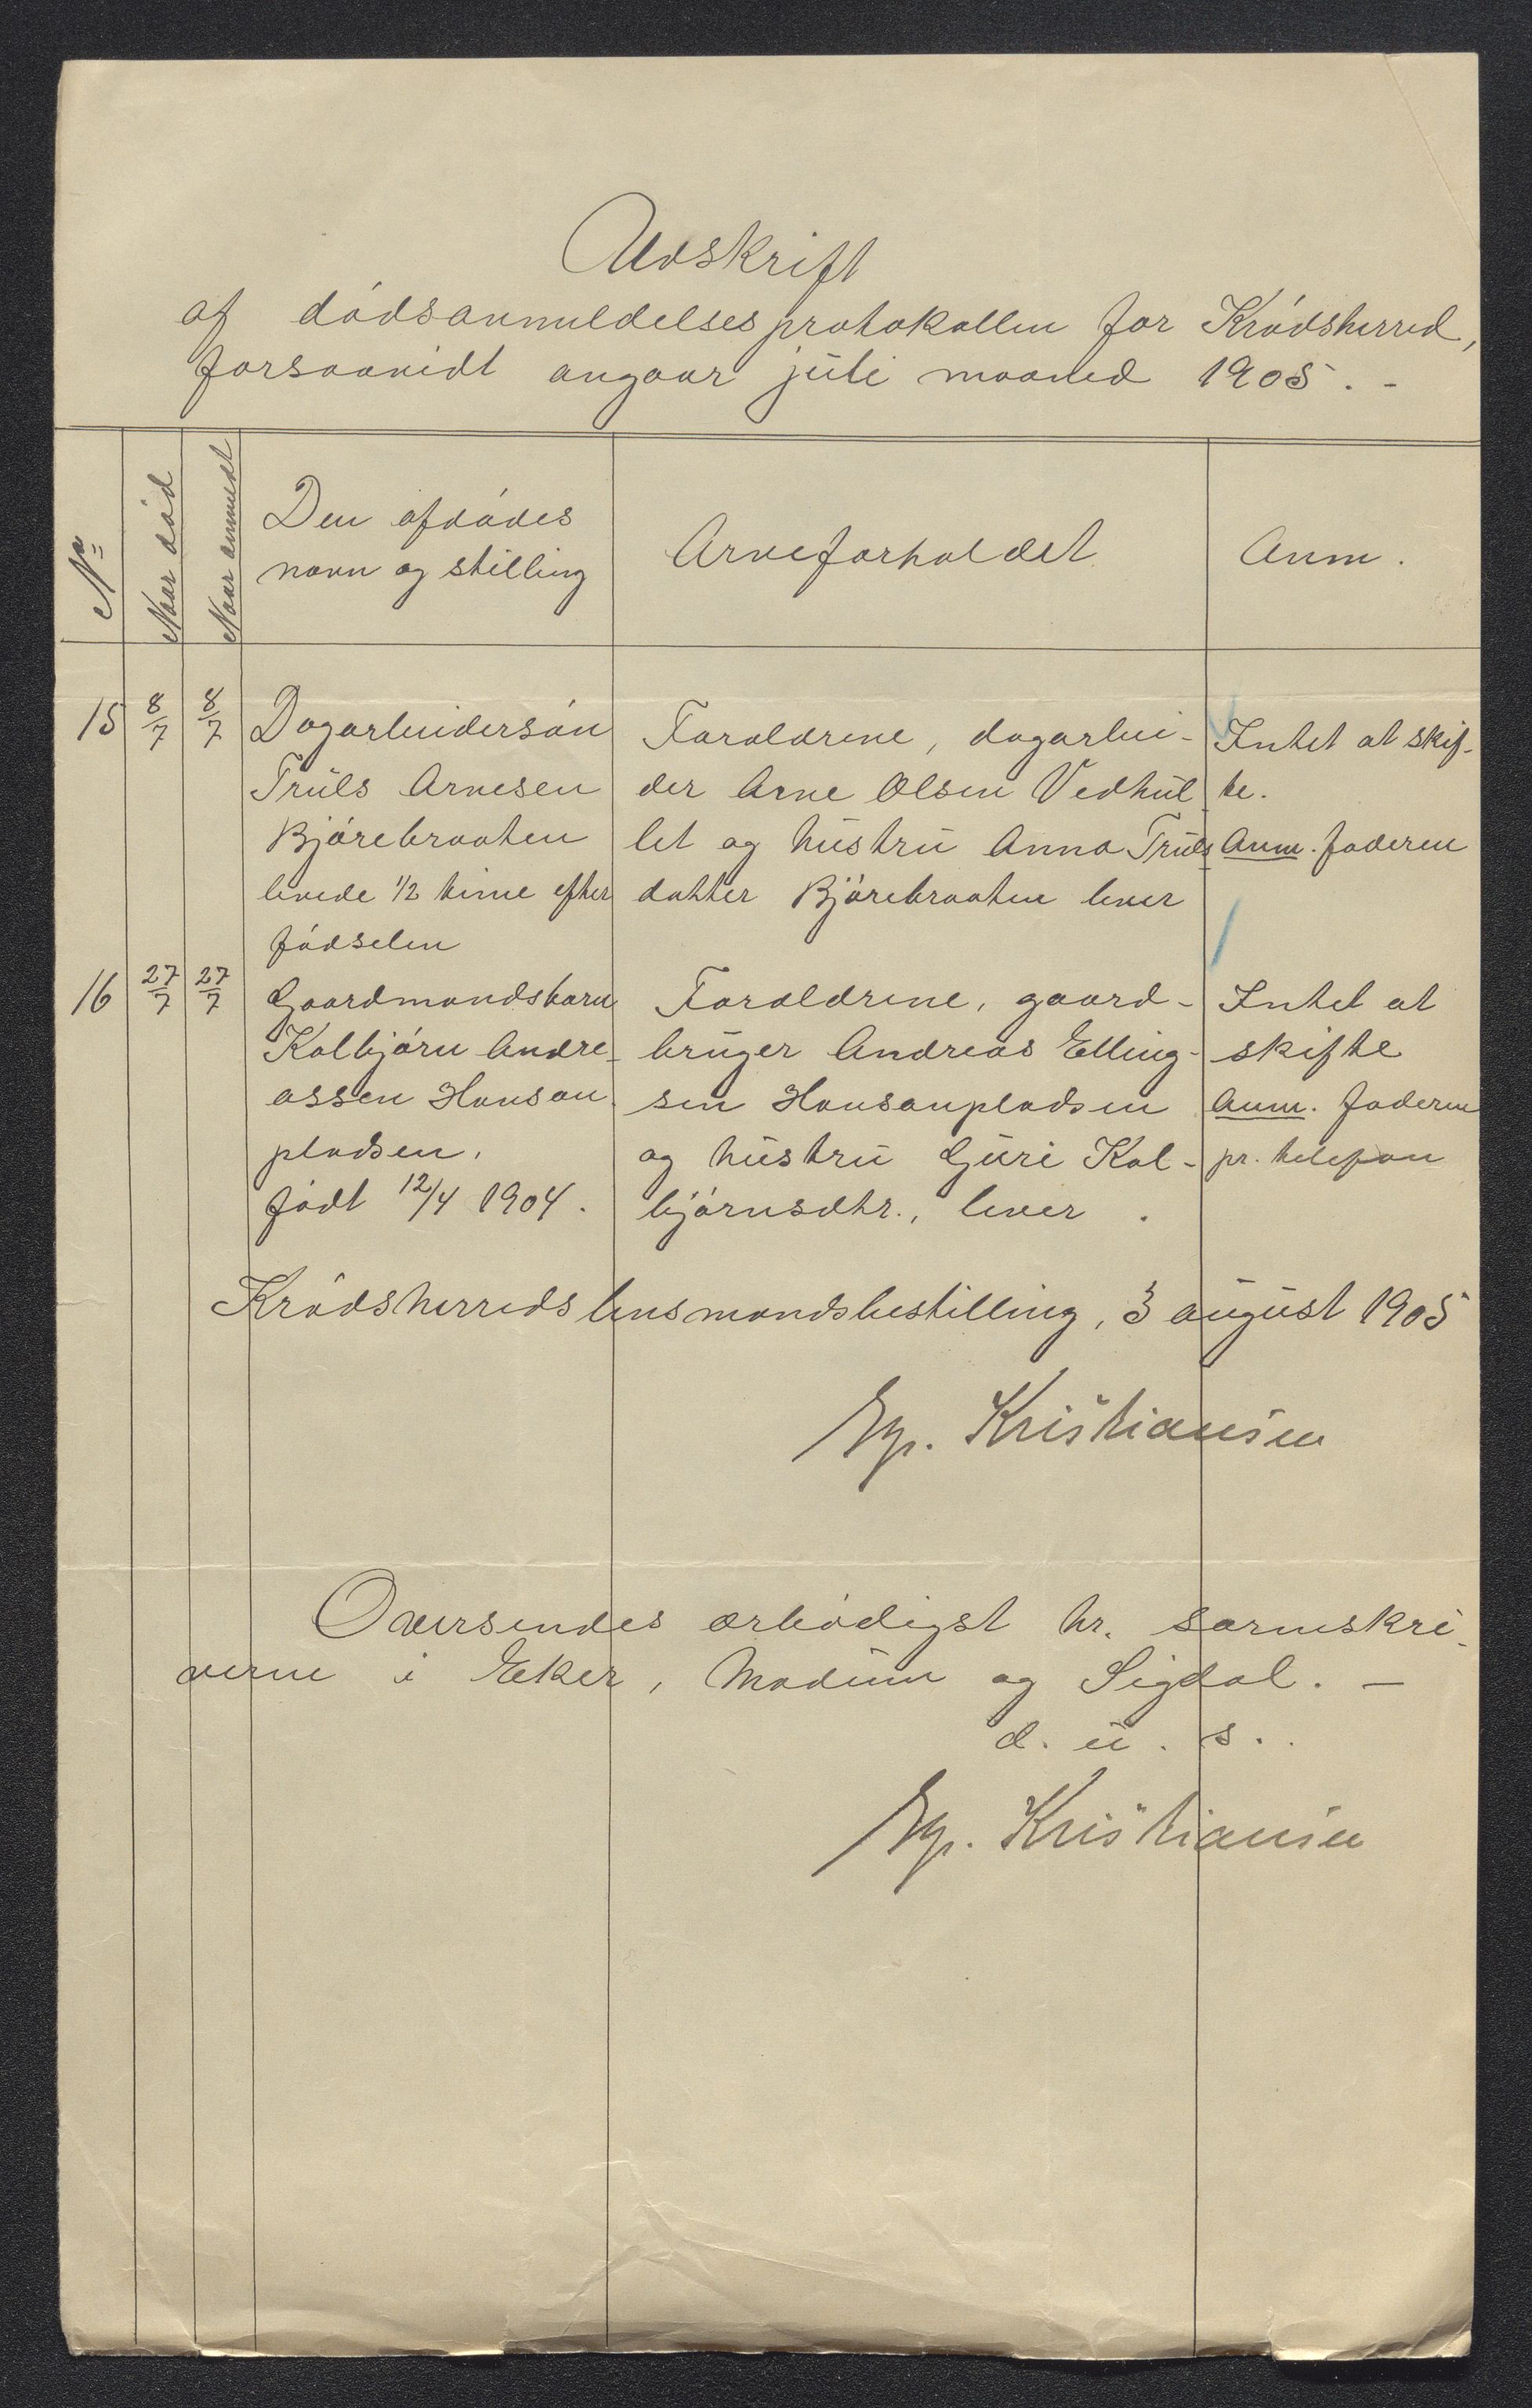 Udskrift
af dødsanmeldelsesprotokollen for Krødsherred,
forsaavidt angaar juli maaned 1905. -
No
Naar død
Naar anmeldt
Den afdødes
navn og stilling
Arveforholdet
Anm.
15 8/7 8/7
Dagarbeidersøn
Truls Arnesen
Bjørebraaten
levede 1/2 time efter
fødselen
Forældrene, dagarbei-
der Arne Olsen Vedhul
let og hustru Anna Truls
datter Bjørebraaten lever
Intet at skif-
te.
Anm. faderen
16 27/7 27/7
Gaardmandsbarn
Kolbjørn Andre-
assen Hansan
pladsen.
født 12/4 1904.
Forældrene, gaard-
bruger Andreas Elling-
sen Hansanpladsen
og hustru Guri Kol-
bjørnsdtr., lever.
Intet at
skifte
Anm. faderen
pr. telefon
Krødsherreds lensmandsbestilling, 3 august 1905
Kristiansen
Oversendes ærbødigst hr. sorenskri-
veren i Eker, Modum og Sigdal. -
d. u. s.
Kristiansen